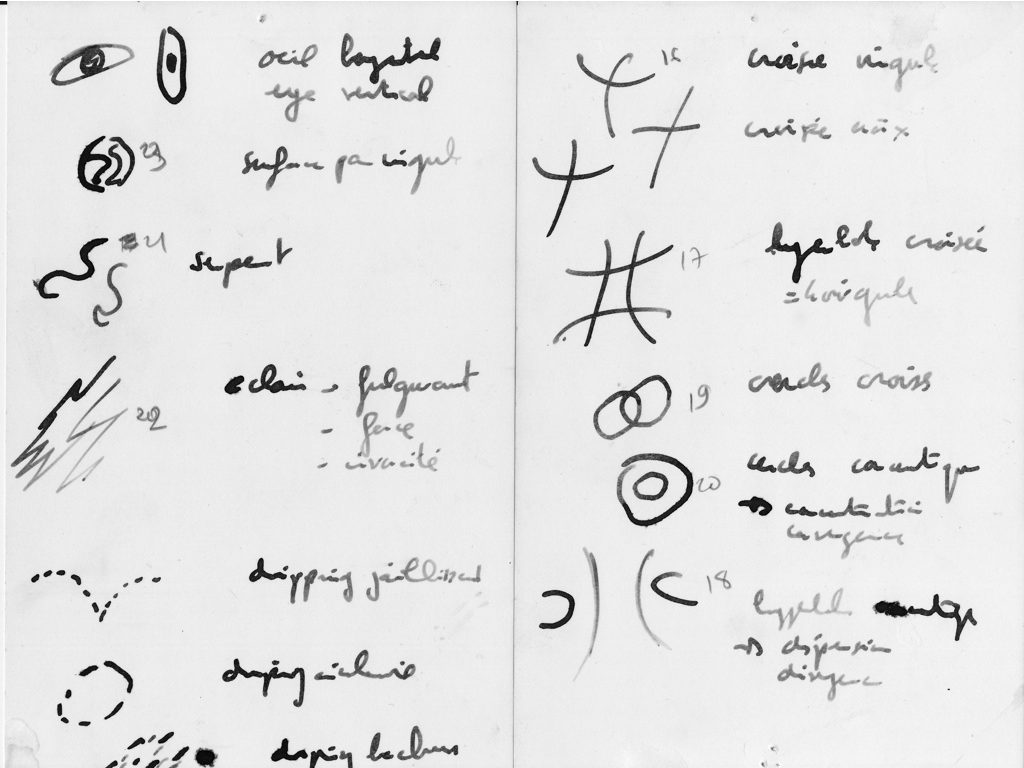 oeil
eye vertical
23 surface par virgule
21 serpent
eclair - fulgurant
22 - force
- vivacité
dripping jaillissant
driping circulaire
driping hachures
16 croisée virgule
croisée croix
17 croisée
19 cercles croisés
20 cercles concentrique
⇒ concentration
convergence
18
⇒ dispersion
divergence